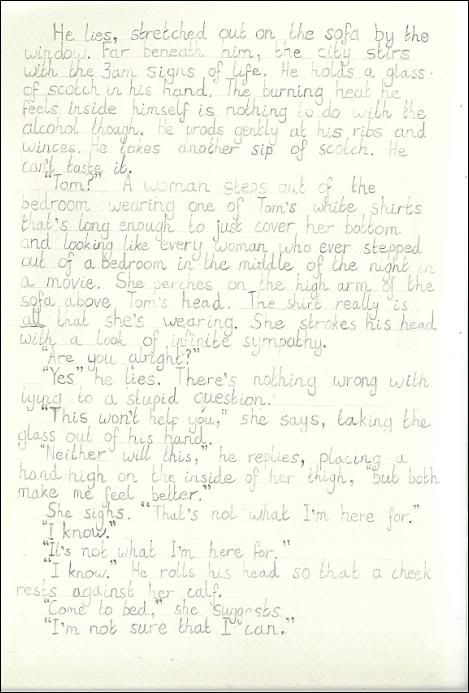 He lies, stretched out on the sofa by the
window. Far beneath him, the city stirs
with the 3am signs of life. He holds a glass
of scotch in his hand. The burning heat he
feels inside himself is nothing to do with the
alcohol though. He prods gently at his ribs and
winces. He takes another sip of scotch. He
can't taste it.
"Tom?" A woman steps out of the
bedroom wearing one of Tom's white shirts
that's long enough to just cover her bottom
and looking like every woman who ever stepped
out of a bedroom in the middle of the night in
a movie. She perches on the high arm of the
sofa above Tom's head. The shirt really is
all that she's wearing. She strokes his head
with a look of infinite sympathy.
"Are you alright?"
"Yes" he lies. There's nothing wrong with
lying to a stupid question.
"This won't help you," she says, taking the
glass out of his hand.
"Neither will this," he replies, placing a
hand high on the inside of her thigh, "but both
make me feel better."
She sighs. "That's not what I'm here for."
"I know."
"It's not what I'm here for."
"I know." He rolls his head so that a cheek
rests against her calf.
"Come to bed," she suggests.
"I'm not sure that I can."